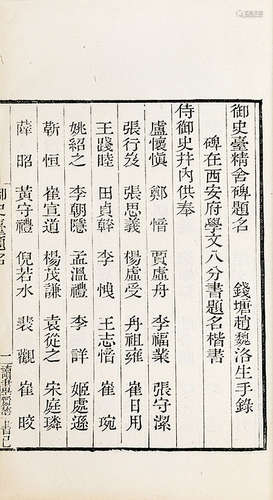 御史臺精舍碑題名
錢塘趙魏洛生手錄
碑在西安府學文八分書題名楷書
侍御史幷內供奉
盧懷愼 鄭愔 賈虛舟 李福業 張守潔
張行岌 張思義 楊虛受 冉祖雍 崔日用
王踐睦 田貞幹 李懊 王志愔 崔琬
姚紹之 李朝隱 孟溫禮 李詳 姬處遜
靳恒 崔宣道 楊茂謙 袁從之 宋庭璘
薛昭 黃守禮 倪若水 裴觀 崔皎
御史臺題名
一